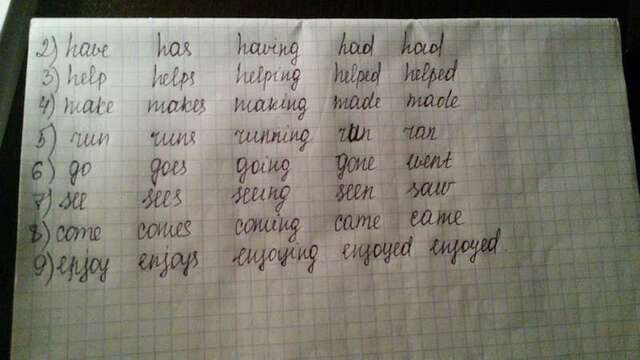 2) have has having had had
3) help helps helping helped helped
4) make makes making made made
5) run runs running run ran
6) go goes going gone went
7) see sees seeing seen saw
8) come comes coming come came
9) enjoy enjoys enjoying enjoyed enjoyed.